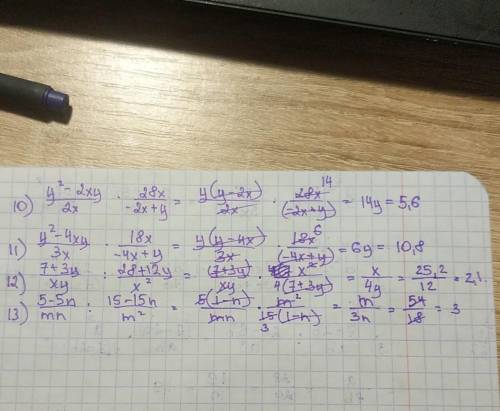 10) (y² - 2xy)/2x · 28x/(-2x+y) = y(y-2x)/2x · 28x 14/(-2x+y) = 14y = 5,6
11) (y² - 4xy)/3x · 18x/(-4x+y) = y(y-4x)/3x · 18x 6/(-4x+y) = 6y = 10,8
12) (7+3y)/xy : (28+12y)/x² = (7+3y)/xy · x²/4(7+3y) = x/4y = 25,2/12 = 2,1.
13) (5-5n)/mn : (15-15n)/m² = 5(1-n)/mn · m²/15 3(1-n) = m/3n = 54/18 = 3